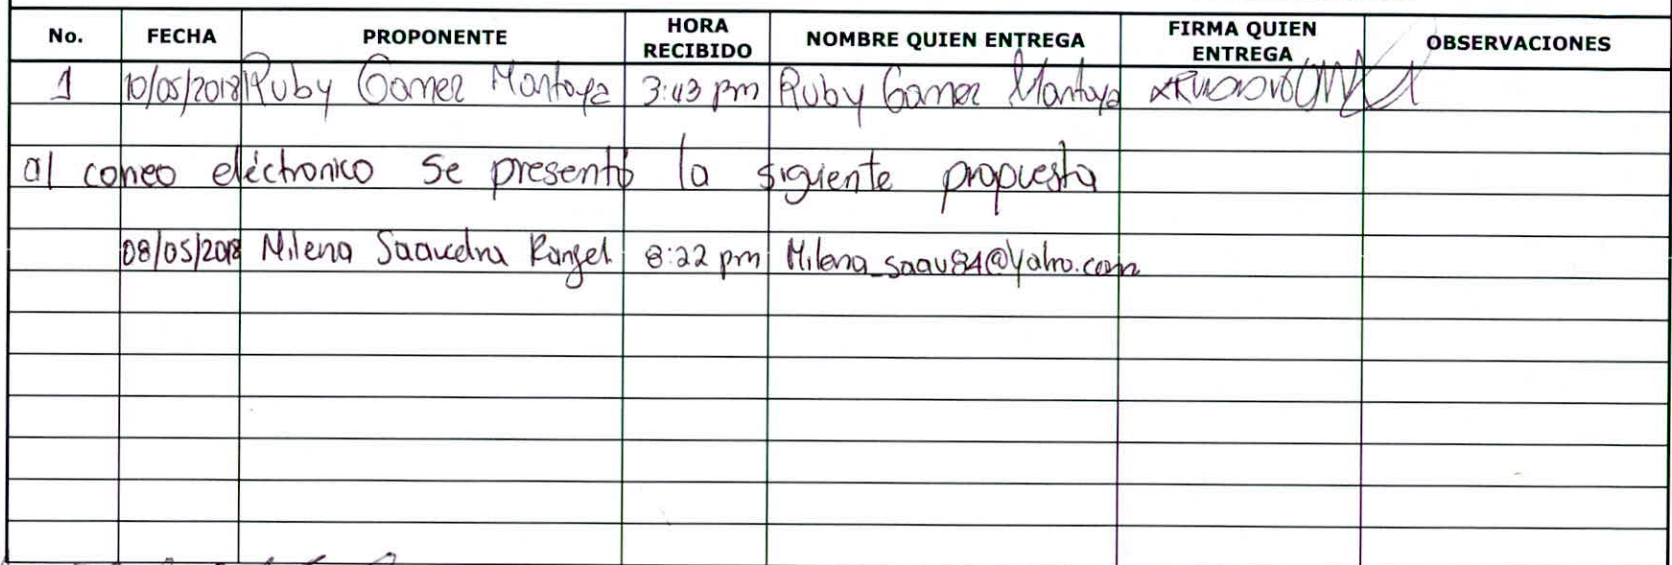 No. FECHA PROPONENTE HORA RECIBIDO NOMBRE QUIEN ENTREGA FIRMA QUIEN ENTREGA OBSERVACIONES
1 10/05/2018 Ruby Gomez Montoya 3:43 pm Ruby Gomez Montoya
al correo eléctronico se presentó la siguiente propuesta
08/05/2018 Milena Saavedra Rangel 8:22 pm Milena_saav84@yahoo.com